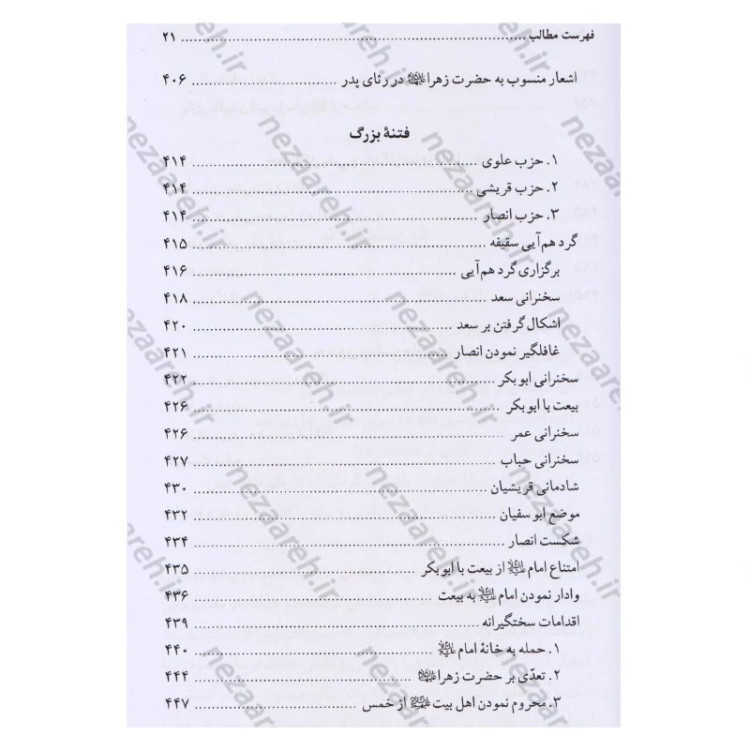 فهرست مطالب ........ ۲۱
اشعار منسوب به حضرت زهرا در رثای پدر ........ ۴۰۶
فتنهٔ بزرگ
۱. حزب علوی ........ ۴۱۴
۲. حزب قریشی ........ ۴۱۴
۳. حزب انصار ........ ۴۱۴
گرد هم‌آیی سقیفه ........ ۴۱۵
برگزاری گرد هم‌آیی ........ ۴۱۶
سخنرانی سعد ........ ۴۱۸
اشکال گرفتن بر سعد ........ ۴۲۰
غافلگیر نمودن انصار ........ ۴۲۱
سخنرانی ابوبکر ........ ۴۲۲
بیعت با ابوبکر ........ ۴۲۶
سخنرانی عمر ........ ۴۲۶
سخنرانی حباب ........ ۴۲۷
شادمانی قریشیان ........ ۴۳۰
موضع ابوسفیان ........ ۴۳۲
شکست انصار ........ ۴۳۴
امتناع امام از بیعت با ابوبکر ........ ۴۳۵
وادار نمودن امام به بیعت ........ ۴۳۶
اقدامات سختگیرانه ........ ۴۳۹
۱. حمله به خانهٔ امام ........ ۴۴۰
۲. تعدّی بر حضرت زهرا ........ ۴۴۴
۳. محروم نمودن اهل بیت از خمس ........ ۴۴۷
nezaareh.ir